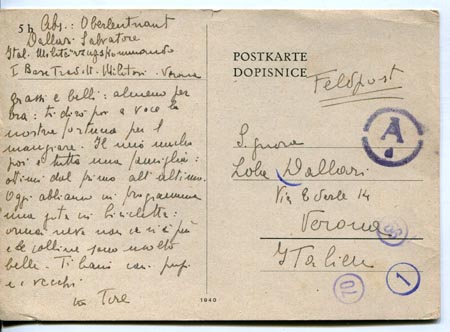 5 h Abs.: Oberleutnant
Dallari Salvatore
Ital. Militärzugskommando
I Base Milit. Verona
grassi e belli: almeno per
ora: ti dirò poi a voce la
nostra fortuna per l
mangiare. Il mio
poi è tutto una famiglia:
ottimi dal primo all'ultimo.
Oggi abbiamo in programma
una gita in bicicletta:
ormai neve non ce n'è più
e le colline sono molto
belle. Ti baci
e i vecchi
tuo Tore
POSTKARTE
DOPISNICE
Feldpost
A
d
Signora
Lola Dallari
Via 14
Verona
Italien
70
1
1940